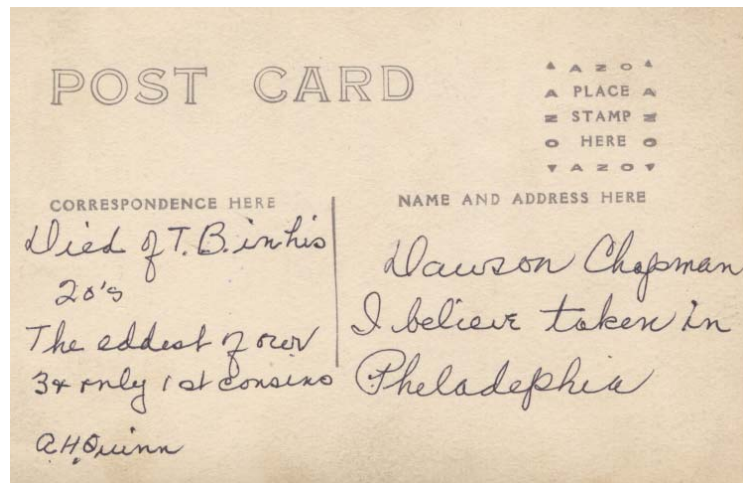 POST CARD
AZO
A PLACE A
Z STAMP Z
O HERE O
AZO
CORRESPONDENCE HERE
Died of T.B. in his
20's
The eddest of our
3 & only 1st cousins
A.H. Quinn
NAME AND ADDRESS HERE
Dawson Chapman
I believe taken in
Pheladephia